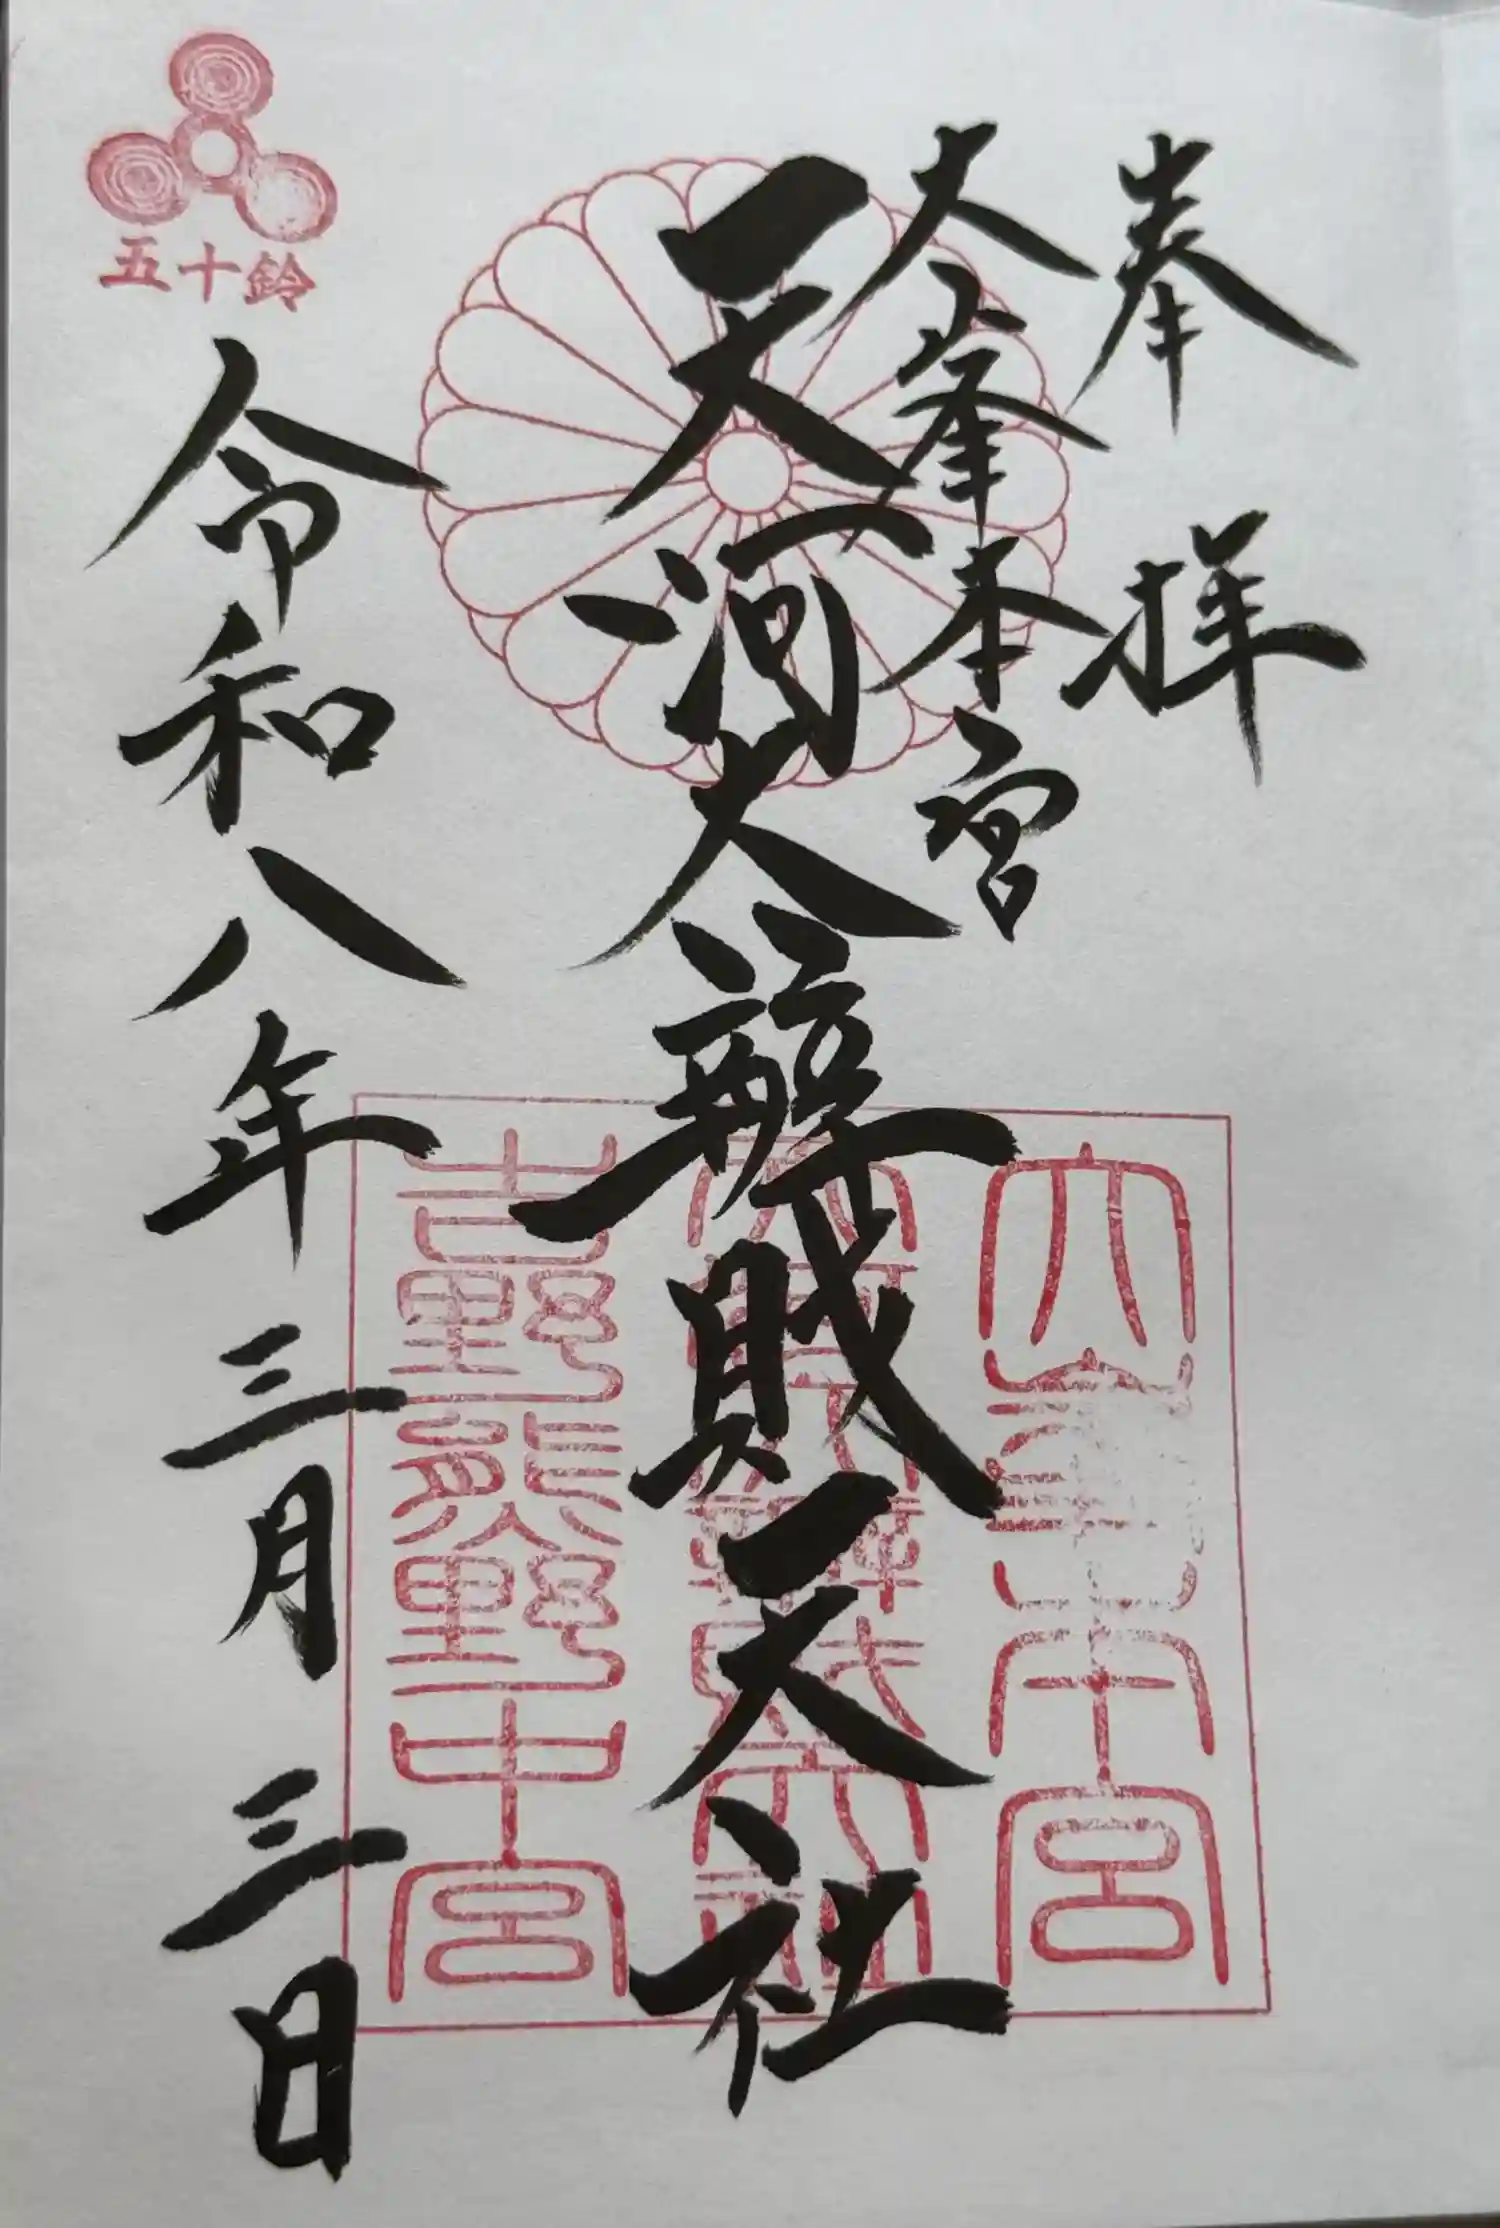 奉拝
大峯本宮
天河大辯財天社
令和八年三月三日
五十鈴
大峯本宮
天河大辯財天社
吉野熊野中宮